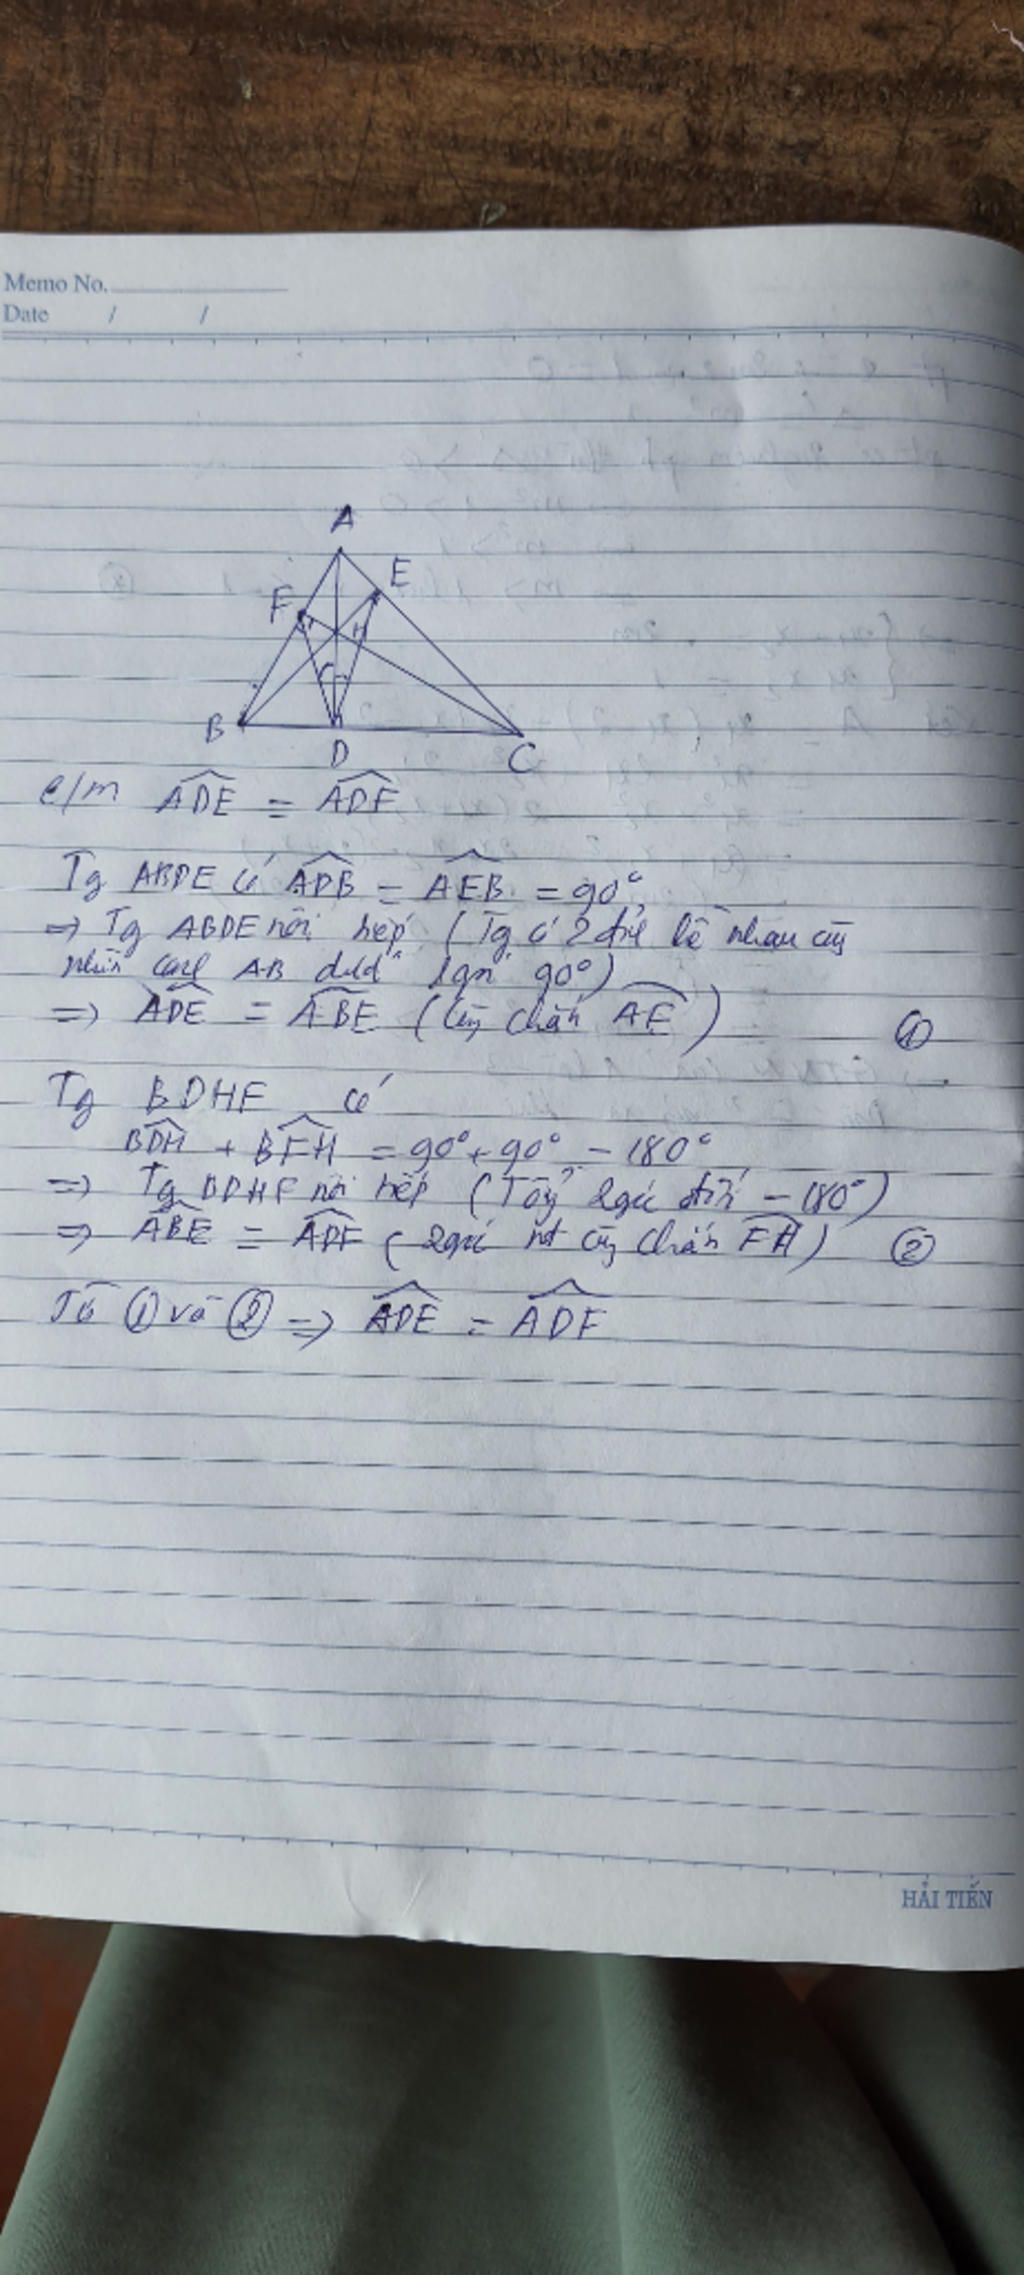 Memo No.
Date / /
A
E
F
H
B
D
C
c/m ADE = ADF
Tg ABDE có ADB = AEB = 90°
=> Tg ABDE nội tiếp (Tg có 2 đỉ kề nhau cùg
nhìn cạnh AB dưới 1 góc 90°)
=> ADE = ABE (cùg chắn AE) ①
Tg BDHF có
BDH + BFH = 90° + 90° = 180°
=> Tg BDHF nội tiếp (Tổng 2 góc đối = 180°)
=> ABE = ADF (2 góc nt cùg chắn FH) ②
Từ ① và ② => ADE = ADF
HẢI TIẾN